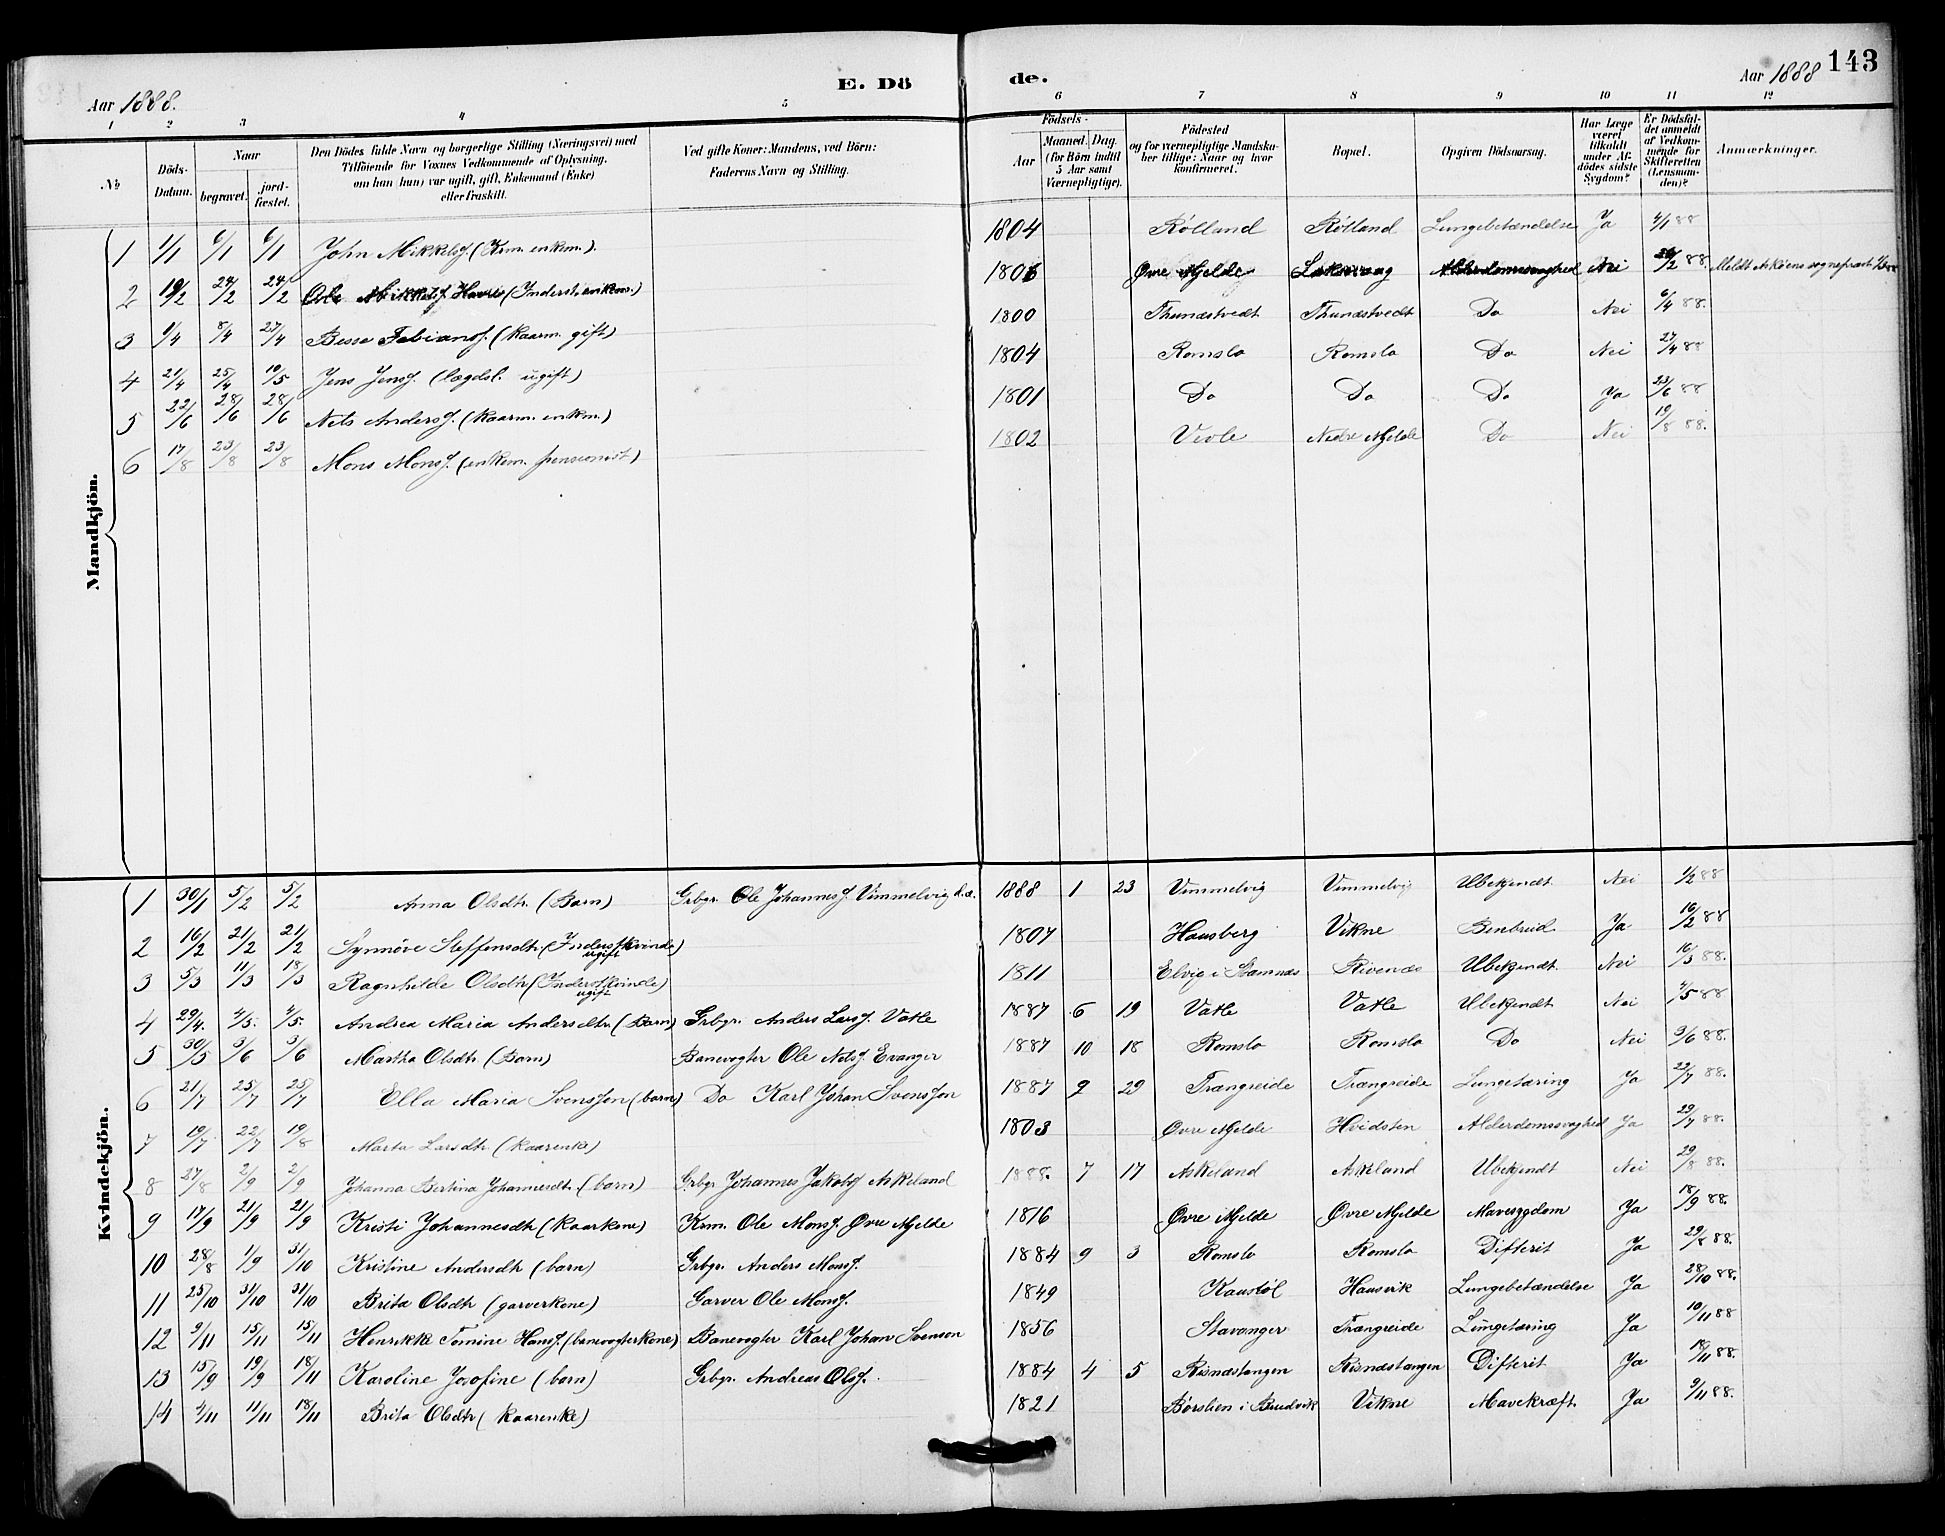 E. Dö de.
143
Aar 1888.
Aar 1888
1 2 3 4 5 6 7 8 9 10 11 12
№
Döds-Datum.
Naar
begravet.
jord-fæstet.
Den Dödes fulde Navn og borgerlige Stilling (Næringsvei) med
Tilföiende for Voxnes Vedkommende af Oplysning,
om han (hun) var ugift, gift, Enkemand (Enke)
eller fraskilt.
Ved gifte Koner: Mandens, ved Börn:
Faderens Navn og Stilling.
Födsels-
Aar
Maaned. Dag.
(for Börn indtil 5 Aar samt Værnepligtige).
Födested
og for værnepligtige Mandskaber tillige: Naar og hvor konfirmeret.
Bopæl.
Opgiven Dödsaarsag.
Har Læge været tilkaldt under Afdödes sidste Sygdom?
Er Dödsfaldet anmeldt af Vedkommende for Skifteretten (Lensmanden)?
Anmærkninger.
Mandkjön.
1 1/1 6/1 6/1 John Mikkelsf. (Krm. enkem.) 1804 Rölland Rölland Lungebetændelse Ja 4/1 88
2 19/2 24/2 24/2 Ole Mikkelsf. (Inderst. enkem.) 1806 Øvre Mjelde Laksevaag Alderdomssvaghed Nei 20/2 88. Meldt Askøens sogneprest
3 1/4 8/4 27/4 Besse Fabiansf. (Kaarm. gift) 1800 Thunestvedt Thunestvedt Do Nei 6/4 88.
4 21/4 25/4 10/5 Jens Jensf. (lægdsl. ugift) 1804 Romslo Romslo Do Nei 27/4 88
5 22/6 28/6 28/6 Nils Andersf. (Kaarm. enkm.) 1801 Do Do Do Ja 23/6 88
6 17/8 23/8 23/8 Mons Monsf. (enkem. pensionist) 1802 Vevle Nedre Mjelde Do Nei 19/8 88.
Kvindekjön.
1 30/1 5/2 5/2 Anna Olsdtr. (Barn) Grbgr. Ole Johannesf. Vimmelvig 1888 1 23 Vimmelvig Vimmelvig Ubekjendt Nei 1/2 88
2 16/2 21/2 21/2 Synnöve Steffensdtr. (Inderstkvinde) ugift 1807 Hausberg Vikne Benbrud Ja 16/2 88
3 5/3 11/3 18/3 Ragnhilde Olsdtr (Inderstkvinde) ugift 1811 Elvig i Stamnes Rivenæs Ubekjendt Nei 16/3 88.
4 29/4. 4/5. 4/5. Andrea Maria Andersdtr. (Barn) Grbgr. Anders Larsf. Vatle 1887 6 19 Vatle Vatle Ubekjendt Nei 4/5 88
5 30/5 3/6 3/6 Martha Olsdtr (Barn) Banevogter Ole Nilsf. Evanger 1887 10 18 Romslo Romslo Do Nei 3/6 88.
6 21/7 25/7 25/7 Ella Maria Svensson (barn) Do Karl Johan Svensson 1887 9 29 Trængreide Trængreide Lungetæring Ja 22/7 88.
7 19/7 22/7 19/8 Marta Larsdtr (Kaarenke) 1803 Øvre Mjelde Hvidsten Alderdomssvaghed Ja 29/7 88.
8 27/8 2/9 2/9 Johanna Bertina Johannesdtr (barn) Grbgr Johannes Jakobsf Askeland 1888. 7 17 Askeland Askland Ubekjendt Nei 29/8 88.
9 17/9 21/9 21/9 Kristi Johannesdtr (Kaarkone) Krm. Ole Monsf. Øvre Mjelde 1816 Øvre Mjelde Øvre Mjelde Mavesygdom Ja 18/9 88.
10 28/8 1/9 31/10 Kristine Andersdtr (barn) Grbgr. Anders Monsf. 1884 9 3 Romslo Romslo Difterit Ja 29/8 88.
11 25/10 31/10 31/10 Brita Olsdtr (garverkone) Garver Ole Monsf. 1849 Hausvik Lungebetændelse Ja 28/10 88.
12 9/11 15/11 15/11 Henrikke Tomine Hansf. (banevogterkone) Banevogter Karl Johan Svenson 1856 Stavanger Trængreide Lungetæring Ja 10/11 88
13 15/9 19/9 18/11 Karoline Josofine (barn) Grbgr. Andreas Olsf. 1884 4 5 Risnæstangen Risnæstangen Difterit Ja 18/11 88.
14 4/11 11/11 18/11 Brita Olsdtr (Kaarenke) 1821 Börslien i Bruvik Vikne Mavekræft. Ja 9/11 88.